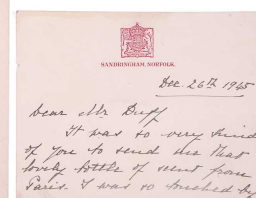 SANDRINGHAM, NORFOLK.
Dec. 26th 1945
Dear Mr Duff
It was so very kind
of you to send me that
lovely bottle of scent from
Paris. I was so touched by